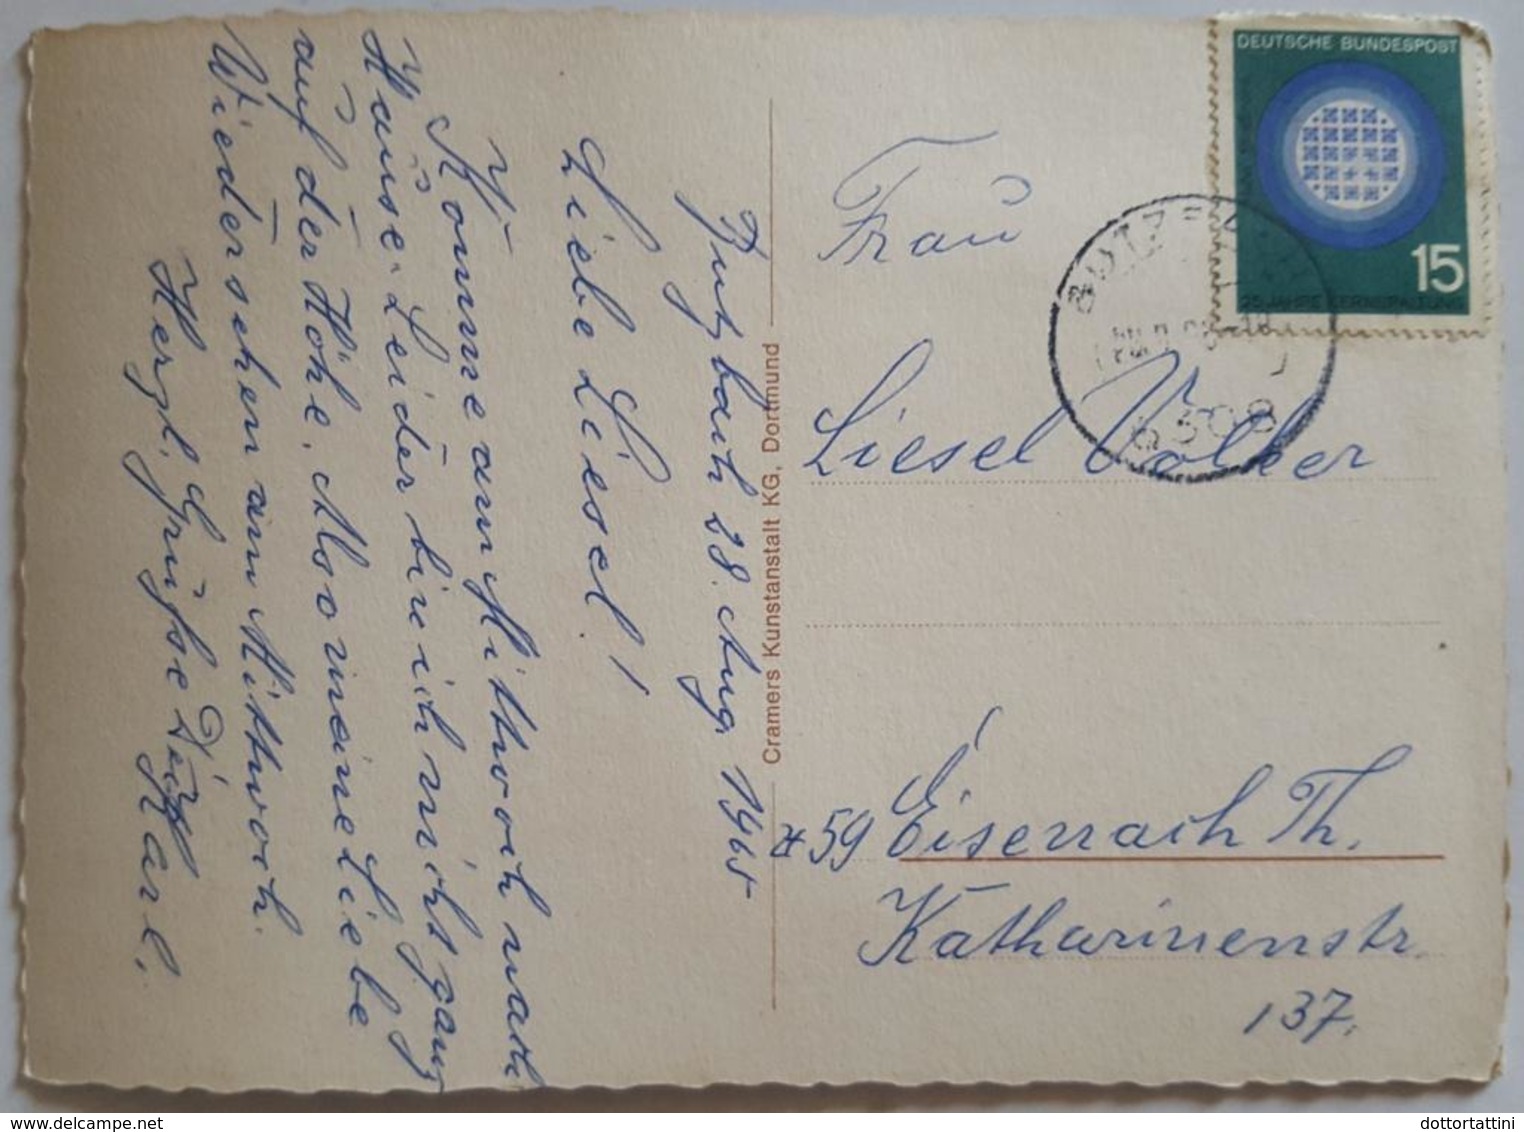 Butzbach 28. Aug. 1965
Liebe Liesel!
Komme am Mittwoch nach
Hause. Leider bin ich nicht ganz
auf der Höhe. Also meine Liebe
Wiedersehen am Mittwoch.
Herzl. Grüße Dein
Karl.
Cramers Kunstanstalt KG, Dortmund
DEUTSCHE BUNDESPOST
15
25 JAHRE KERNSPALTUNG
BUTZBACH
6308
Frau
Liesel Volker
59 Eisenach Th.
Katharinenstr.
137.
dottortattini